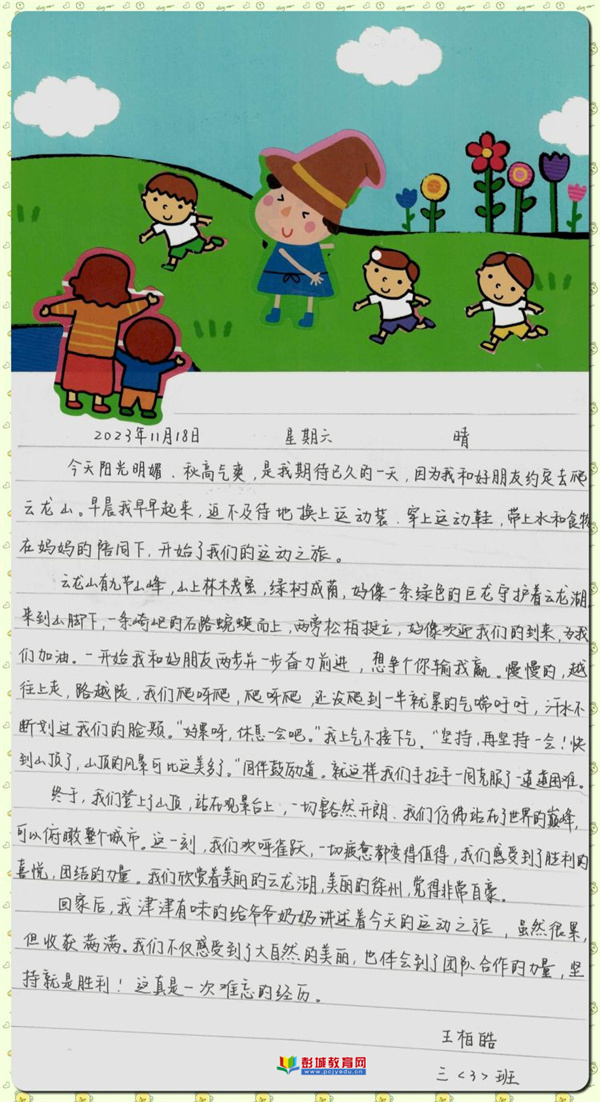 2023年11月18日 星期六 晴
今天阳光明媚、秋高气爽，是我期待已久的一天，因为我和好朋友约定去爬
云龙山。早晨我早早起来，迫不及待地换上运动装、穿上运动鞋，带上水和食物
在妈妈的陪同下，开始了我们的运动之旅。
云龙山有九节山峰，山上林木茂密，绿树成荫，好像一条绿色的巨龙守护着云龙湖
来到山脚下，一条崎岖的石路蜿蜒而上，两旁松柏挺立，好像欢迎我们的到来，为我
们加油。一开始我和好朋友两步并一步奋力前进，想争个你输我赢。慢慢的，越
往上走，路越陡，我们爬呀爬，爬呀爬，还没爬到一半就累的气喘吁吁，汗水不
断划过我们的脸颊。“好累呀，休息一会吧。”我上气不接下气。“坚持，再坚持一会！快
到山顶了，山顶的风景可比这美多了。”同伴鼓励道。就这样我们手拉手一同克服了一道道困难。
终于，我们登上了山顶，站在观景台上，一切豁然开朗、我们仿佛站在了世界的巅峰，
可以俯瞰整个城市。这一刻，我们欢呼雀跃，一切疲惫都变得值得，我们感受到了胜利的
喜悦，团结的力量。我们欣赏着美丽的云龙湖，美丽的徐州，觉得非常自豪。
回家后，我津津有味的给爷爷奶奶讲述着今天的运动之旅，虽然很累，
但收获满满。我们不仅感受到了大自然的美丽，也体会到了团队合作的力量，坚
持就是胜利！这真是一次难忘的经历。
王柏皓
三〈3〉班
彭城教育网
www.pcjyedu.cn